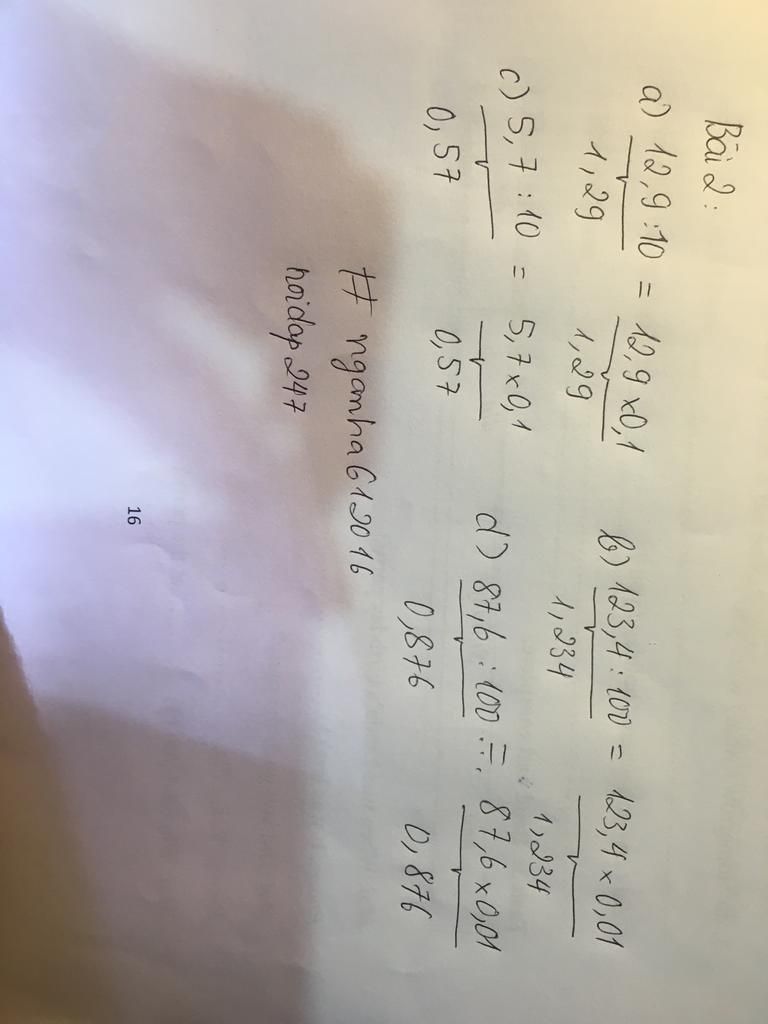 Bài 2:
a) 12,9 : 10 = 12,9 x 0,1
1,29 1,29
b) 123,4 : 100 = 123,4 x 0,01
1,234 1,234
c) 5,7 : 10 = 5,7 x 0,1
0,57 0,57
d) 87,6 : 100 = 87,6 x 0,01
0,876 0,876
# ngamha612016
hoidap 247
16